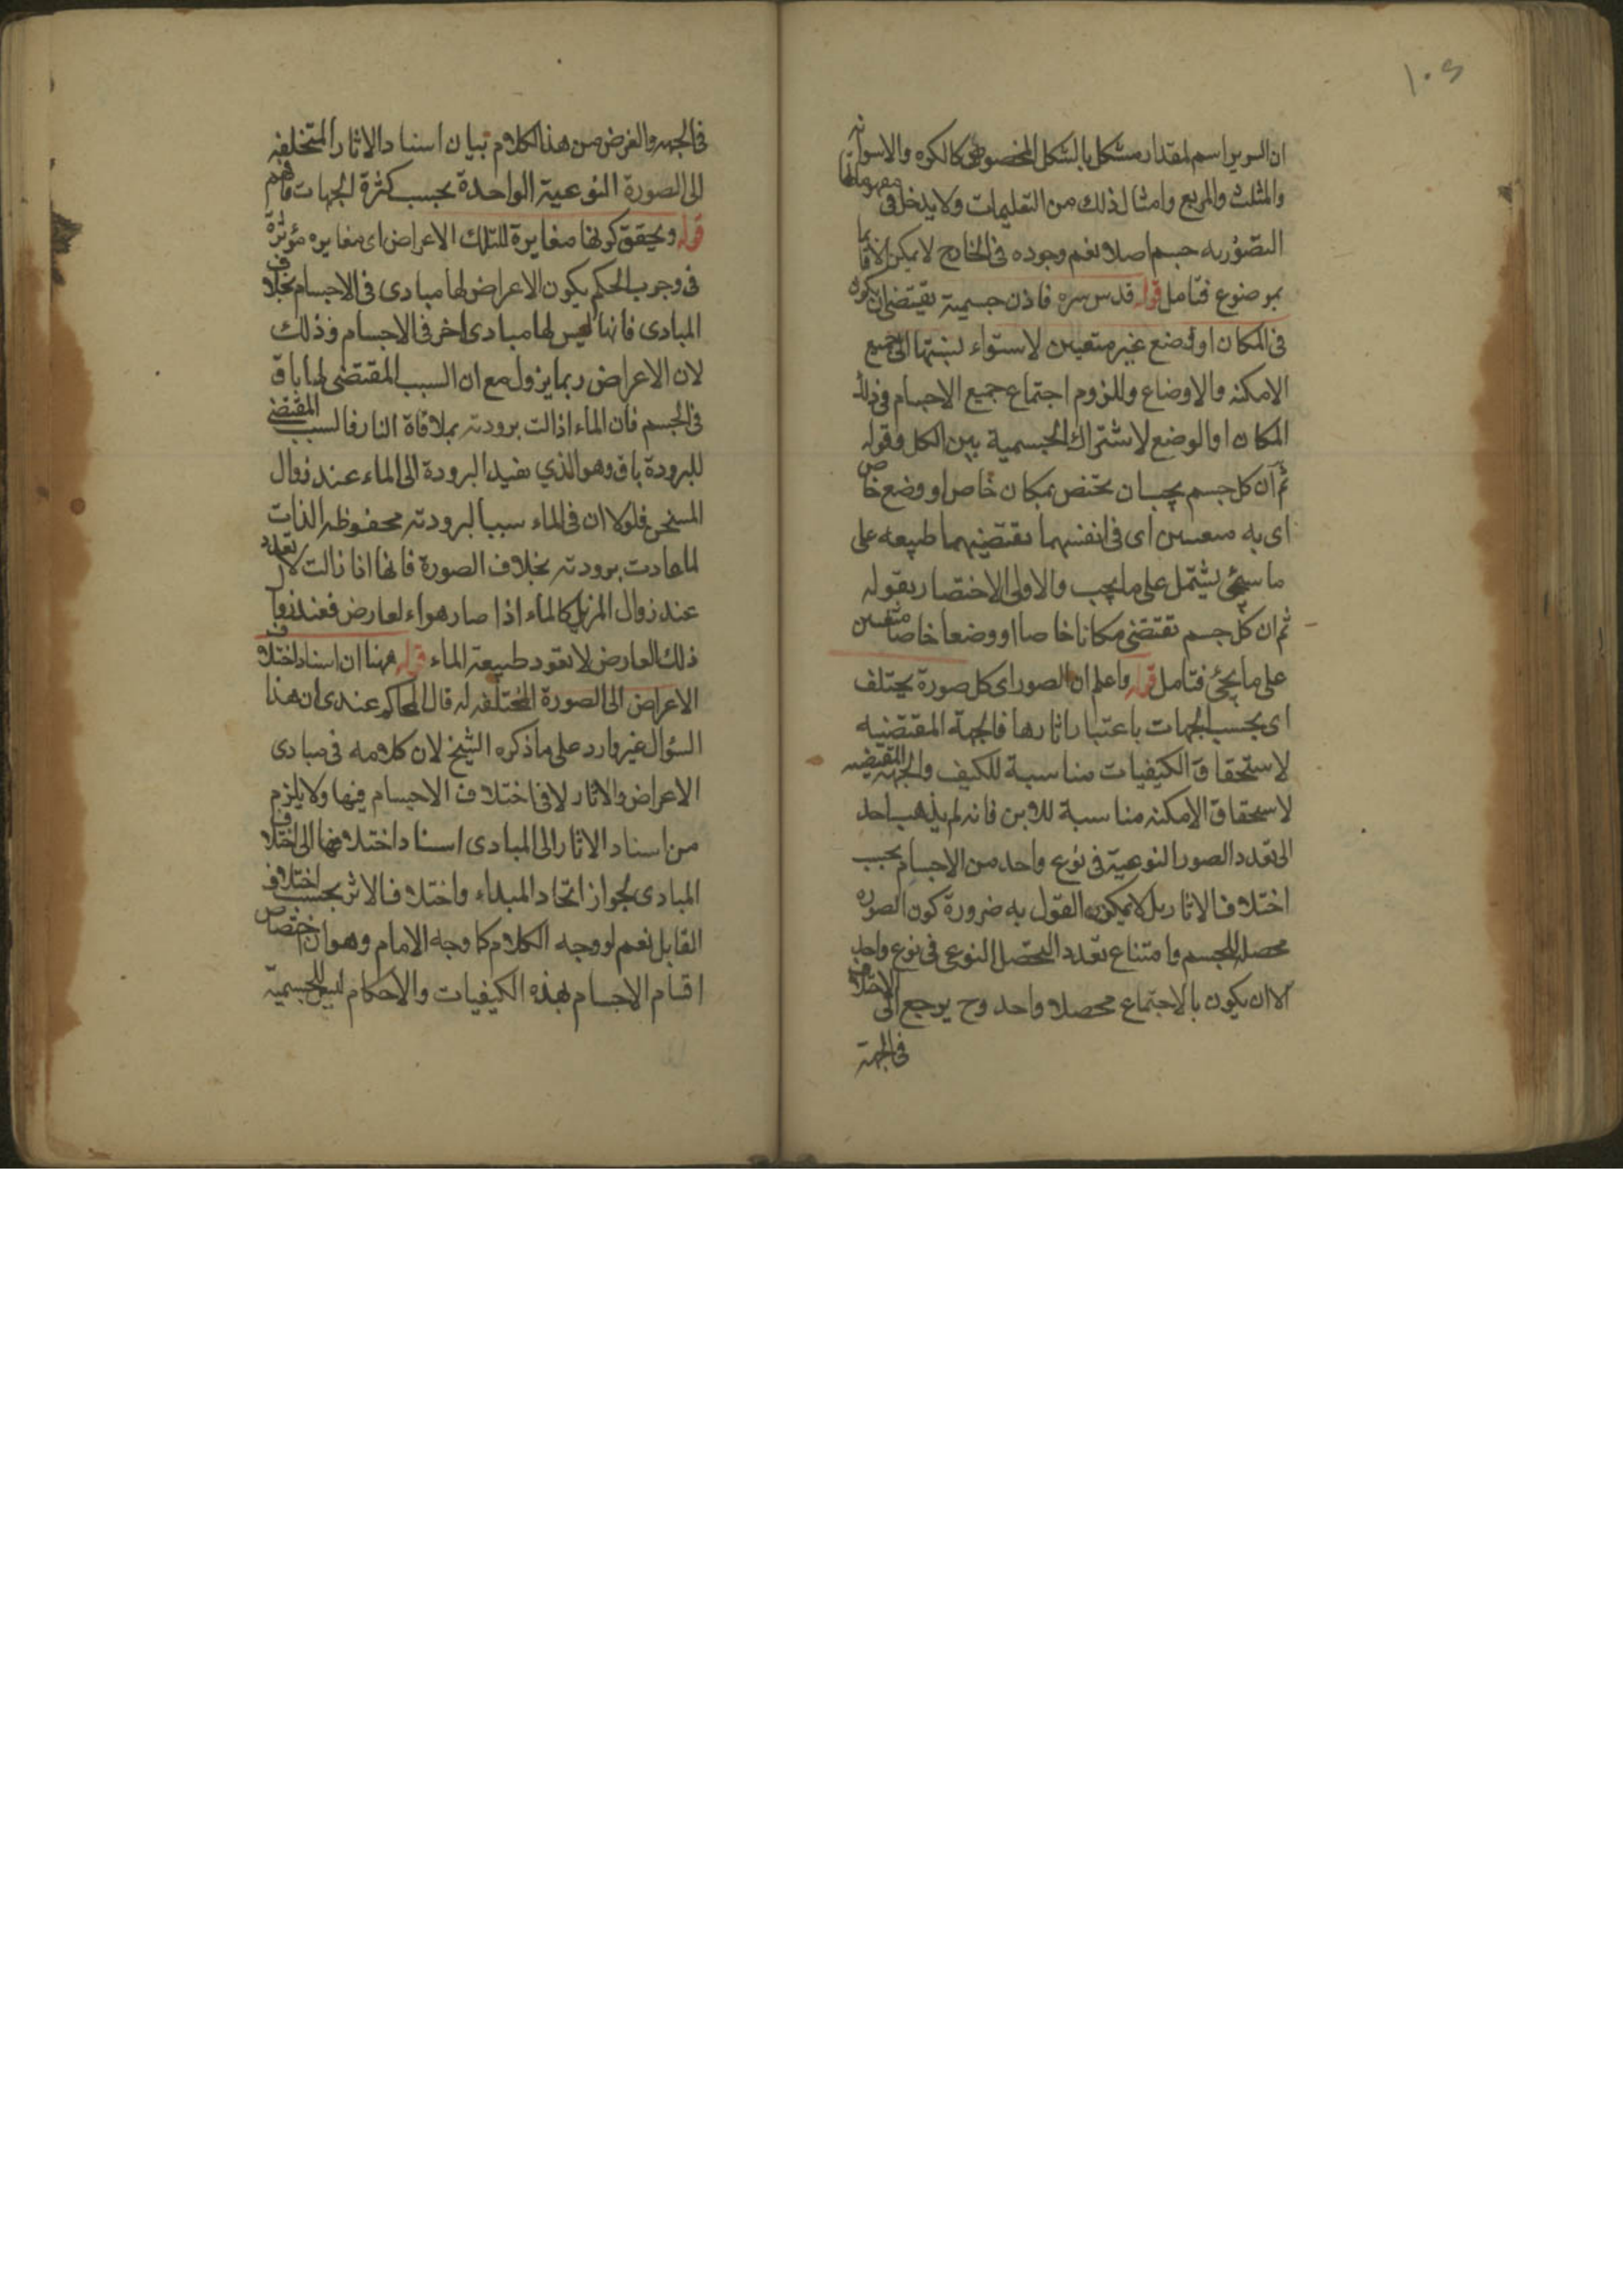 ١٠٥
ان السرير اسم لمقدار مشكل بالشكل المخصوص كالكره والاسطوانه
والمثلث والمربع وامثال ذلك من التعليمات ولا يدخل فى مفهوماتها
التصوريه جسم اصلا نعم وجوده فى الخارج لا يمكن الا قائما
بموضوع فتامل قوله قدس سره فاذن جسمية يقتضى ان يكون
فى المكان او وضع غير متعين لاستواء نسبتها الى جميع
الامكنه والاوضاع وللزوم اجتماع جميع الاجسام فى ذلك
المكان او الوضع لاشتراك الجسمية بين الكل وقوله
ثم ان كل جسم يجب ان يختص بمكان خاص او وضع خاص
اى به متعينين اى فى انفسهما يقتضيهما طبيعه على
ما سيجئ يشتمل على ما يجب والاولى الاختصار بقوله
ثم ان كل جسم يقتضى مكانا خاصا او وضعا خاصا متعينين
على ما يجئ فتامل قوله واعلم ان الصور اى كل صورة يختلف
اى بحسب الجهات باعتبار اثارها فالجهة المقتضيه
لاستحقاق الكيفيات مناسبة للكيف والجهه المقتضيه
لاستحقاق الامكنه مناسبة للاين فانه لم يذهب احد
الى تعدد الصور النوعية فى نوع واحد من الاجسام بحسب
اختلاف الاثار بل لا يمكن القول به ضرورة كون الصوره
محصلا للجسم وامتناع تعدد المحصل النوعى فى نوع واحد
الا ان يكون بالاجتماع محصلا واحد وح يرجع الى الاختلاف
فى الجهة
فى الجهه والغرض من هذا الكلام بيان اسناد الاثار المتخلفه
الى الصورة النوعية الواحدة بحسب كثرة الجهات فافهم
قوله ويحقق كونها مغايرة لتلك الاعراض اى مغايره مؤثرة
فى وجوب الحكم بكون الاعراض لها مبادى فى الاجسام بخلاف
المبادى فانها ليس لها مبادى اخر فى الاجسام وذلك
لان الاعراض ربما يزول مع ان السبب المقتضى لها باق
فى الجسم فان الماء اذا زالت برودته بملاقاة النار فالسبب المقتضى
للبرودة باق وهو الذي يفيد البرودة الى الماء عند زوال
المسخن فلولا ان فى الماء سببا لبرودته محفوظه الذات
لما عادت برودته بخلاف الصورة فانها اذا زالت لا تعود
عند زوال المزيل كالماء اذا صار هواء لعارض فعند زوال
ذلك العارض لا تعود طبيعة الماء قوله ههنا ان اسناد اختلاف
الاعراض الى الصورة المختلفه له قال المحاكم عندى ان هذا
السؤال غير وارد على ما ذكره الشيخ لان كلامه فى مبادى
الاعراض والاثار لا فى اختلاف الاجسام فيها ولا يلزم
من اسناد الاثار الى المبادى اسناد اختلافها الى اختلاف
المبادى لجواز اتحاد المبداء واختلاف الاثر بحسب اختلاف
القابل نعم لو وجه الكلام كما وجه الامام وهو ان اختصاص
اقسام الاجسام بهذه الكيفيات والاحكام ليس للجسمية